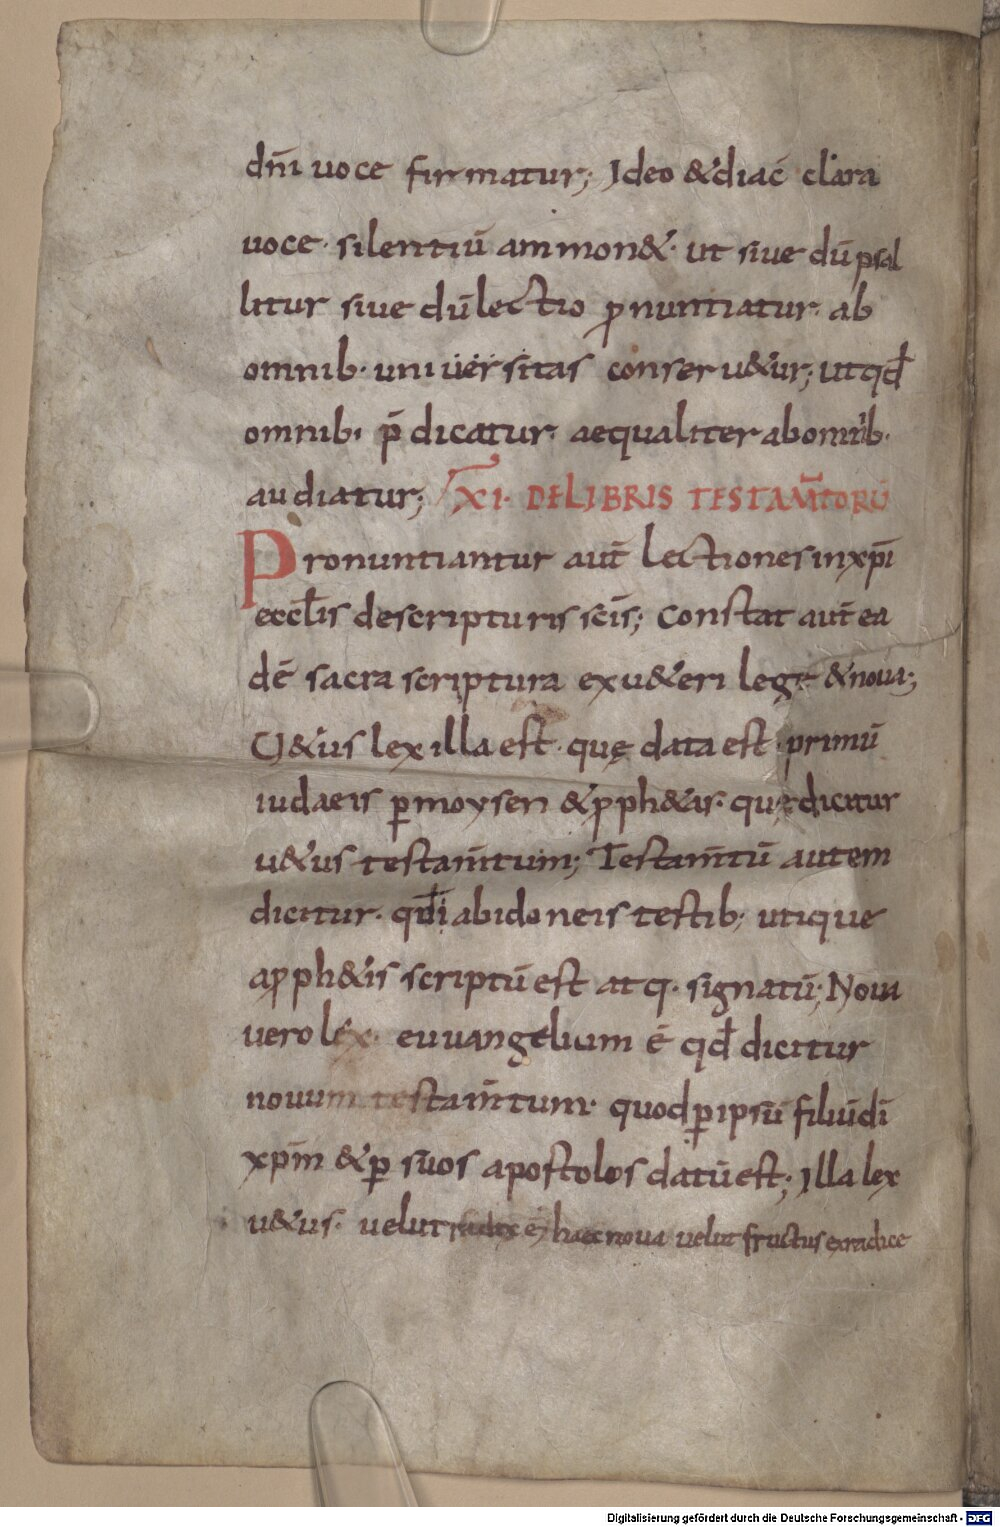 dn̄i uoce firmatur; Ideo &diac̄ clara
uoce· silentiū ammon&· ut siue dū psal
litur siue dū lectio pronuntiatur· ab
omnib· uniuersitas conseru&ur; ut qd̄
omnib· p̄dicatur· aequaliter ab omnib·
audiatur; XI· DE LIBRIS TESTAM̄TORŪ
Pronuntiantur aut̄ lectiones in xp̄i
eccl̄is de scripturis sc̄is; Constat aut̄ ea
dē sacra scriptura ex u&eri lege & noua;
U&us lex illa est· quę data est primū
iudaeis p̱ moysen & proph&as· quę dicitur
u&us testam̄tum; Testam̄tū autem
dicitur· quia ab idoneis testib; utique
a proph&is scriptū est atq· signatū; Noua
uero lex· euuangelium ē qd̄ dicitur
nouum testam̄tum· quod p̱ ipsū filiū dī
xp̄m & p̱ suos apostolos datū est; Illa lex
u&us· uelut radix ē haec noua uelut fructus ex radice
Digitalisierung gefördert durch die Deutsche Forschungsgemeinschaft - DFG